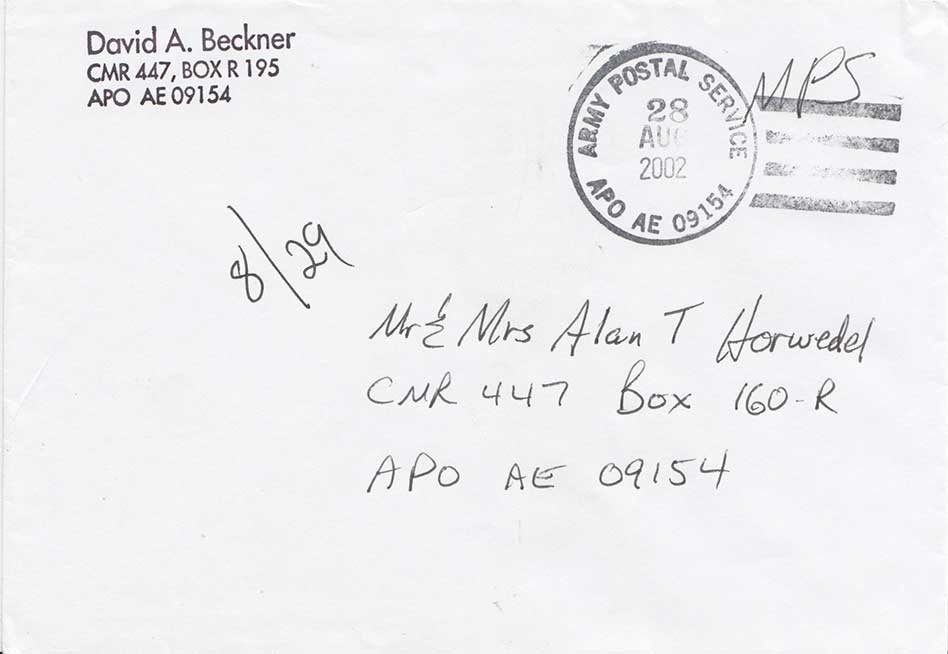 David A. Beckner
CMR 447, BOX R 195
APO AE 09154
ARMY POSTAL SERVICE
28
AUG
2002
APO AE 09154
MPS
8/29
Mr & Mrs Alan T Horwedel
CMR 447 Box 160-R
APO AE 09154